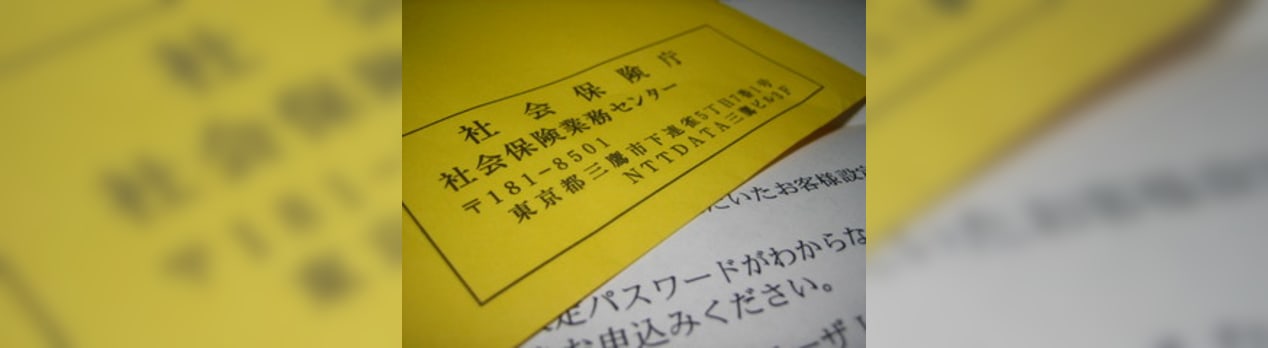 社会保険庁
社会保険業務センター
〒181-8501
東京都三鷹市下連雀5丁目7番1号
NTTDATA三鷹ビル3F
だいたお客様設定
定パスワードがわからな
お申込みください。
ーザ